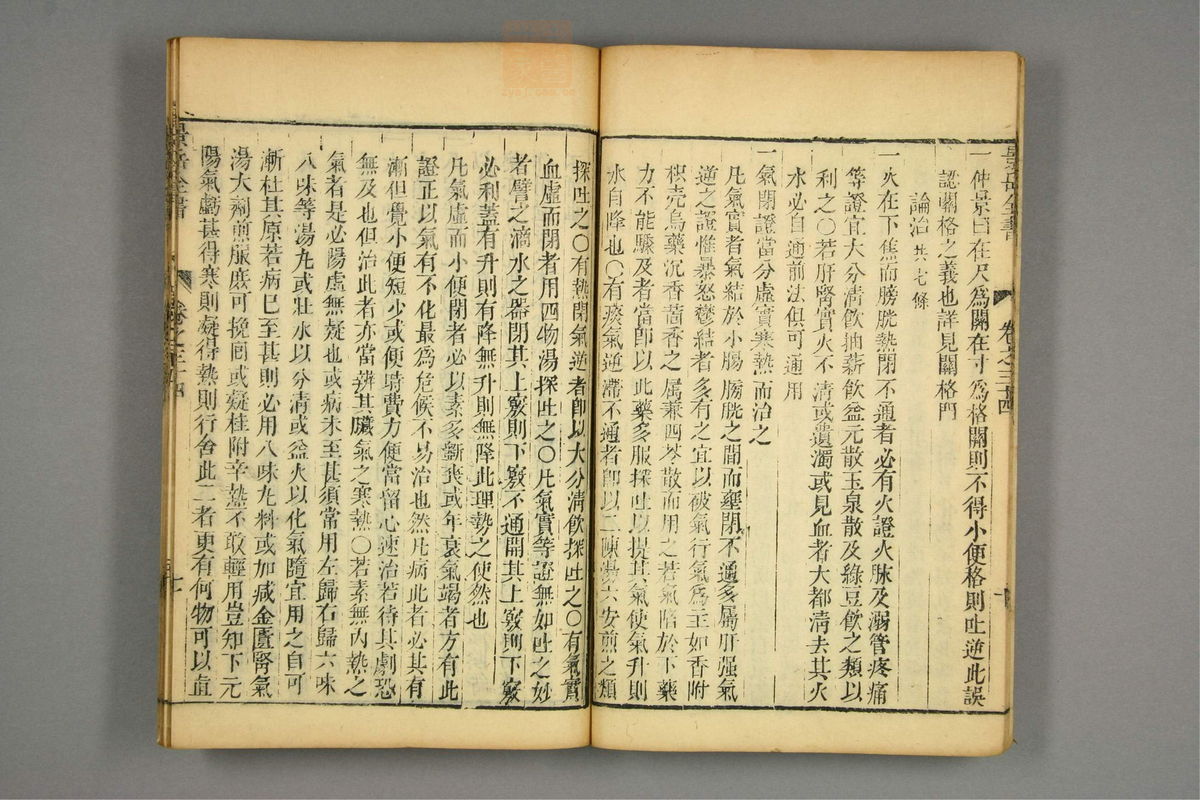 景岳全書 卷之三十四
一仲景曰在尺爲關在寸爲格關則不得小便格則吐逆此誤
認關格之義也詳見關格門
論治 共七條
一火在下焦而膀胱熱閉不通者必有火證火脉及溺管疼痛
等證宜大分清飲抽薪飲益元散玉泉散及綠豆飲之類以
利之○若肝腎實火不清或遺濁或見血者大都清去其火
水必自通前法俱可通用
一氣閉證當分虛實寒熱而治之
凡氣實者氣結於小腸膀胱之間而壅閉不通多屬肝强氣
逆之證惟暴怒鬱結者多有之宜以破氣行氣爲主如香附
枳壳烏藥沉香茴香之屬兼四苓散而用之若氣陷於下藥
力不能驟及者當卽以此藥多服探吐以提其氣使氣升則
水自降也○有痰氣逆滯不通者卽以二陳湯六安煎之類
探吐之○有熱閉氣逆者卽以大分清飲探吐之○有氣實
血虛而閉者用四物湯探吐之○凡氣實等證無如吐之妙
者譬之滴水之器閉其上竅則下竅不通開其上竅則下竅
必利蓋有升則有降無升則無降此理勢之使然也
凡氣虛而小便閉者必以素多斵喪或年衰氣竭者方有此
證正以氣有不化最爲危候不易治也然凡病此者必其有
漸但覺小便短少或便時費力便當留心速治若待其劇恐
無及也但治此者亦當辨其臟氣之寒熱○若素無內熱之
氣者是必陽虛無疑也或病未至甚須常用左歸右歸六味
八味等湯丸或壯水以分清或益火以化氣隨宜用之自可
漸杜其原若病已至甚則必用八味丸料或加减金匱腎氣
湯大劑煎服庶可挽回或疑桂附辛熱不敢輕用豈知下元
陽氣虧甚得寒則凝得熱則行舍此二者更有何物可以直
景岳全書 卷之三十四 七